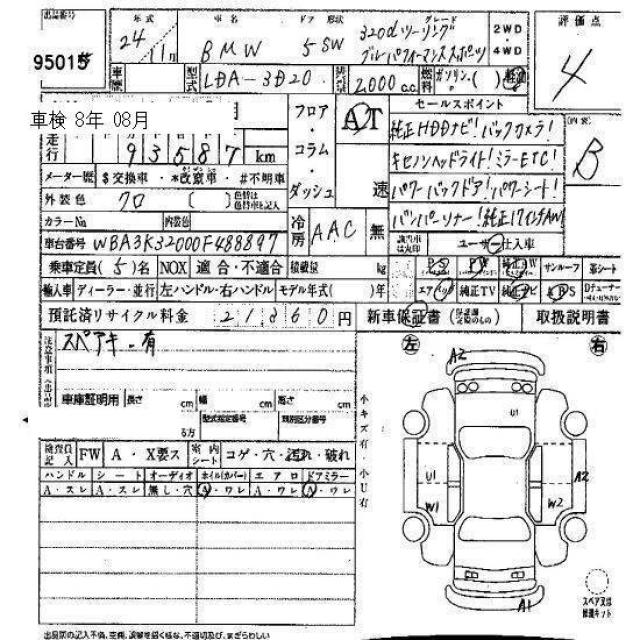 出品番号
95015
年式
24
11月
車名
BMW
ドア形状
5 SW
グレード
320dツーリング
ブルーパフォーマンススポーツ
2WD
4WD
評価点
4
車歴
型式
LDA-3D20
排気量
2,000 c.c.
燃料
ガソリン( )軽油
車検 8年 08月
走行
93587 km
フロア・コラム・ダッシュ
AT
速
セールスポイント
純正HDDナビ!バックカメラ!
キセノンヘッドライト!ミラーETC!
パワーバックドア!パワーシート!
純正17インチAW
内装
B
メーター歴 $交換車・*改ざん車・#不明車
外装色
クロ
( )
色替は色替車と記入
カラーNo
内装色
冷房
AAC
無
ユーザー・仕入車
車台番号 WBA3K32000F488897
乗車定員(5)名 NOX 適合・不適合 積載量 kg
PS PW 純正AW サンルーフ 革シート
輸入車 ディーラー・並行 左ハンドル・右ハンドル モデル年式( )年
エアバッグ 純正TV 純正ナビ ABS
預託済リサイクル料金 21860円
新車保証書
取扱説明書
注意事項
スペアキー有
左
右
車庫証明用 長さ cm 幅 cm 高さ cm
型式指定番号
類別区分番号
検査員記入 FW A・X要ス 室内シート コゲ・穴・汚れ・破れ
ハンドル シート オーディオ ホイル(カバー) エアロ ドアミラー
A・スレ A・スレ 無し・穴 A・ワレ A・ワレ A・ワレ
小キズ有・小U有
A2
U1
U1
W1
A2
W2
A1
スペア又は修理キット
出品店の記入不備、空欄、誤解を招く様な、不適切及び、まぎらわしい